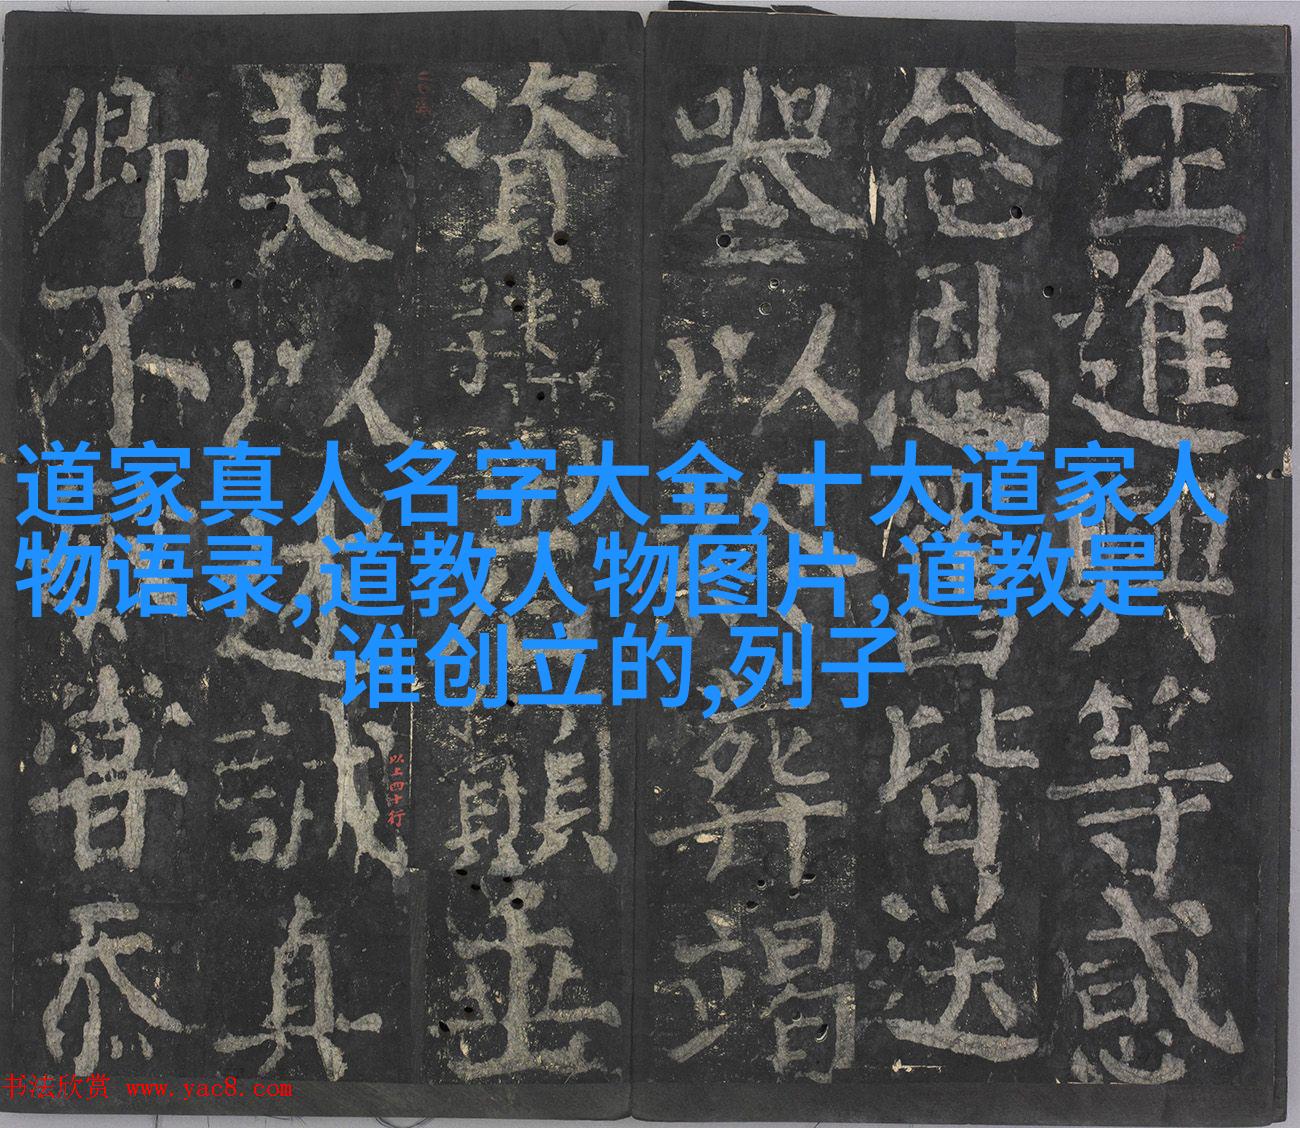 道家真人名字大全,十大道家人
物语录,道教人物图片,道教是
谁创立的,列子
王進與等感
念恩皆送
以葬竭
資顯並
美以誠真
卿不忝
以上四十行
书法欣赏 www.yac8.com